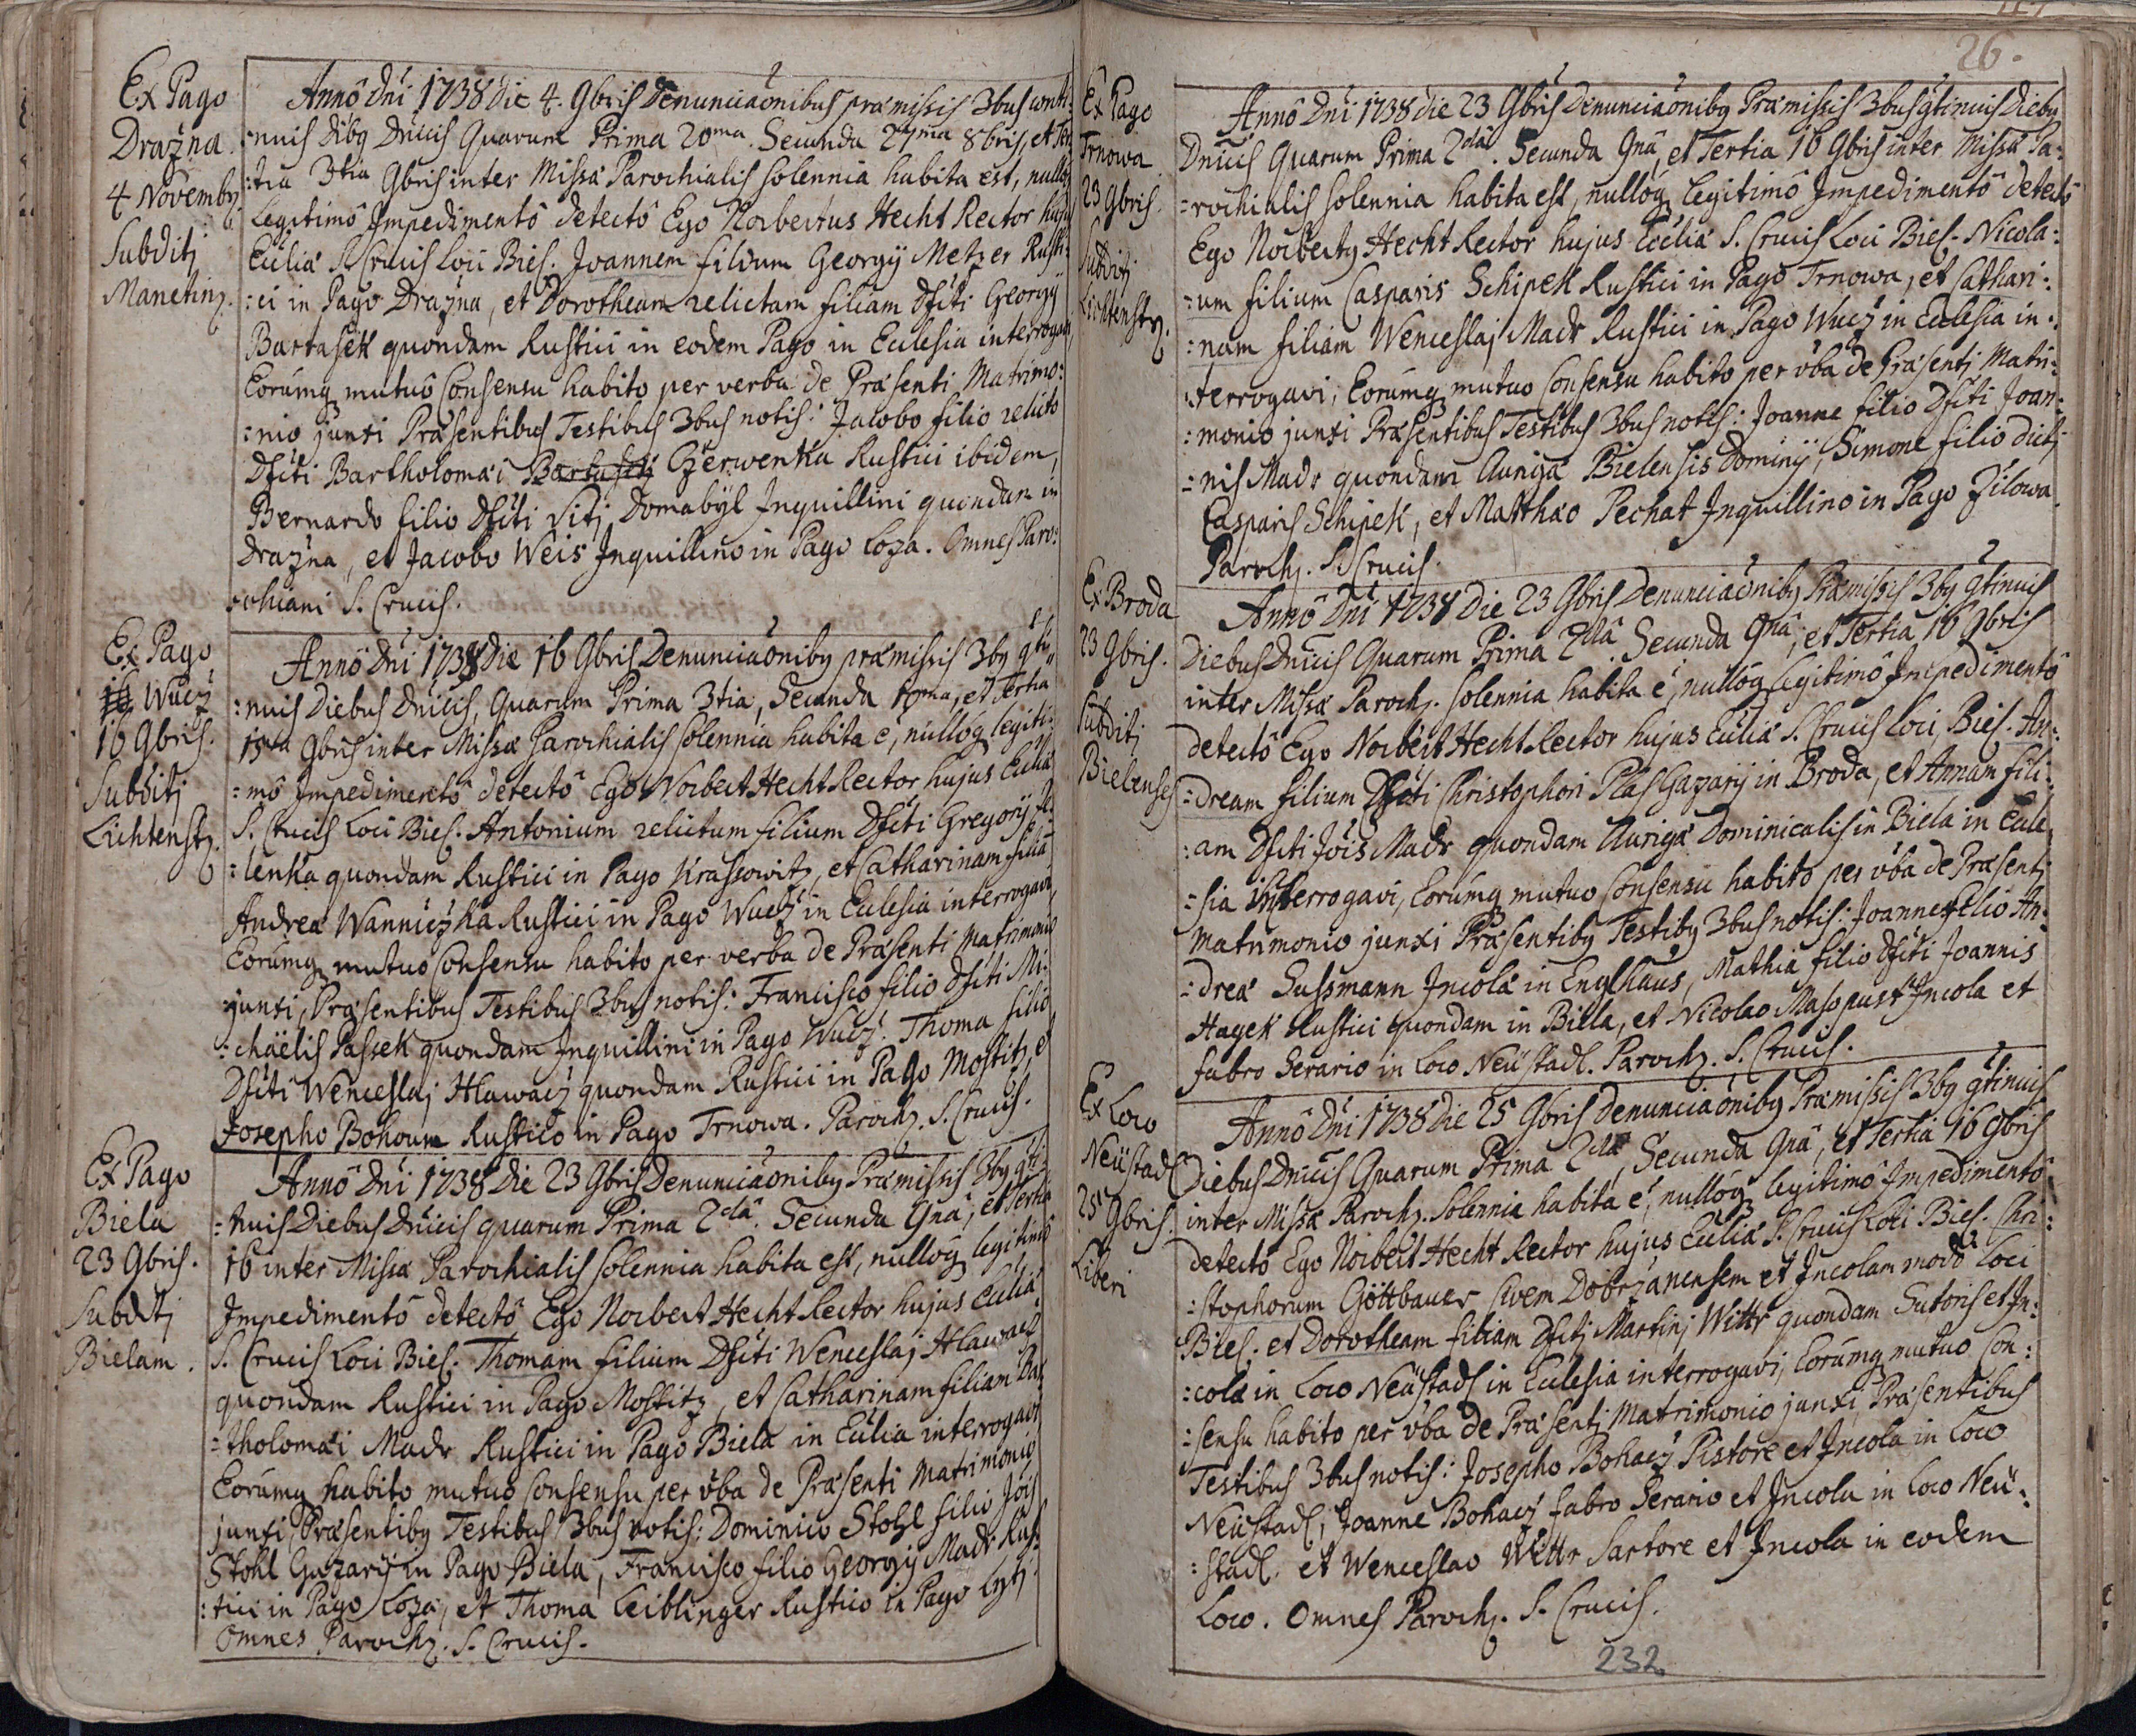 Ex Pago
Drazna.
4 Novembr.
Subditj
Manetinz.
Annô Dni 1738 die 4. 9bris Denunciaõnibus præmissis 3bus conti-
:nuis dibq Dnicis Quarum Prima 20ma. Secunda 27ma 8bris, et Ter
:tia 3tia 9bris inter Missæ Parochialis solennia habita est, nulloq
legitimô Impedimentô detectô Ego Norbertus Hecht Rector hujus
Eccliæ S. Crucis Loci Biel. Joannem filium Georgij Metzer Rusti:
:ci in Pago Drazna, et Dorotheam relictam filiam Dfcti Georgij
Bartasek quondam Rustici in eodem Pago in Ecclesia interrogavi,
Eorumq mutuô Consensu habito per verba de Præsenti Matrimo:
:nio junxi Præsentibus Testibus 3bus notis: Jacobo filio relicto
Dfcti Bartholomæi Czerwenka Rustici ibidem,
Bernardo filio Dfcti Vitj Domabyl Inquillini quondam in
Drazna, et Jacobo Weis Inquillino in Pago Loza. Omnes Paro:
:chiani S. Crucis.
Ex Pago
Wucz
16 9bris.
Subditj
Lichtenstz.
Annô Dni 1738 die 16 9bris Denunciaõnibq præmissis 3bq gti
:nuis Diebus Dnicis, Quarum Prima 3tia, Secunda 10ma, et Tertia
15ta 9bris inter Missæ Parochialis solennia habita é, nulloq legiti:
:mô Impedimentô detectô Ego Norbert Hecht Rector hujus Eccliæ
S. Crucis Loci Biel. Antonium relictum filium Dfcti Gregorij
:lenka quondam Rustici in Pago Krassowitz, et Catharinam filia
Andreæ Wanniczka Rustici in Pago Wucz in Ecclesia interrogavi,
Eorumq mutuo Consensu habito per verba de Præsenti Matrimonio
junxi, Præsentibus Testibus 3bus notis: Francisco filio Dfcti Mi:
:chäelis Passek quondam Inquillini in Pago Wucz. Thoma filio
Dfcti Wenceslaj Hlawacz quondam Rustici in Pago Mostitz, et
Josepho Bohoum Rustico in Pago Trnowa. Parochz. S. Crucis.
Ex Pago
Biela
23 9bris.
Subditj
Bielam.
Annô Dni 1738 die 23 9bris Denunciaõnibq Præmissis 3bq gti
:nuis Diebus Dnicis quarum Prima 2dâ. Secunda 9nâ, et Tertia
16 inter Missæ Parochialis solennia habita est, nulloq legitimô
Impedimentô detectô Ego Norbert Hecht Rector hujus Eccliæ
S. Crucis Loci Biel. Thomam filium Dfcti Wenceslaj Hlawacz
quondam Rustici in Pago Mostitz, et Catharinam filiam Bar
:tholomæi Madr Rustici in Pago Biela in Ecclia interrogavi,
Eorumq habito mutuo Consensu per vba de Præsenti Matrimonio
junxi, Præsentibq Testibus 3bus notis: Dominico Stohl filio Jois
Stohl Gazarij in Pago Biela, Francisco filio Georgij Madr Rus:
:tici in Pago Loza, et Thoma Leiblinger Rustico in Pago
Omnes Parochz. S. Crucis.
26.
Ex Pago
Trnowa
23 9bris.
Subditj
Lichtenstz.
Annô Dni 1738 die 23 9bris Denunciaõnibq Præmissis 3bus gtinuis Diebq
Dnicis Quarum Prima 2dâ. Secunda 9nâ, et Tertia 16 9bris inter Missæ Pa:
:rochialis solennia habita est, nulloq legitimô Impedimentô detectô
Ego Norbertq Hecht Rector hujus Eccliæ S. Crucis Loci Biel. Nicola:
:um filium Casparis Schipek Rustici in Pago Trnowa, et Cathari:
:nam filiam Wenceslaj Madr Rustici in Pago Wucz in Ecclesia in:
:terrogavi, Eorumq mutuo Consensu habito per vba de Præsentj Matri:
:monio junxi Præsentibus Testibus 3bus notis: Joanne filio Dfcti Joan:
:nis Madr quondam Aurigæ Bielensis Dominij, Simone filio dictj
Casparis Schipek, et Matthæo Pechat Inquillino in Pago Zilowa.
Parochz. S. Crucis.
Ex Broda
23 9bris.
Subditj
Bielenses
Annô Dni 1738 Die 23 9bris Denunciaõnibq Præmissis 3bq gtinuis
Diebus Dnicis Quarum Prima 2dâ. Secunda 9nâ, et Tertia 16 9bris
inter Missæ Parochz. solennia habita é, nulloq legitimô Impedimentô
detectô Ego Norbert Hecht Rector hujus Eccliæ S. Crucis Loci Biel. An:
:dream filium Dfcti Christophori Plas Gazarij in Broda, et Annam fili:
:am Dfcti Jois Madr quondam Aurigæ Dominicalis in Biela in Eccle
:sia interrogavi, Eorumq mutuo Consensu habito per vba de Præsentj
Matrimonio junxi Præsentibq Testibq 3bus notis: Joanne filio An:
:dreæ Sussmann Incolæ in Englhaus, Mathia filio Dfcti Joannis
Hayek Rustici quondam in Biela, et Nicolao Masopust Incola et
fabro Serario in Loco Neüstadl. Parochz. S. Crucis.
Ex Loco
Neüstadl
25 9bris.
Liberi
Annô Dni 1738 die 25 9bris Denunciaõnibq Præmissis 3bq gtinuis
Diebus Dnicis Quarum Prima 2dâ, Secunda 9nâ, et Tertia 16 9bris
inter Missæ Parochz. Solennia habita é, nulloq legitimô Impedimentô
detectô Ego Norbert Hecht Rector hujus Eccliæ S. Crucis Loci Biel. Chri:
:stophorum Göttbauer Civem Dobrzanensem et Incolam modô Loci
Biel. et Dorotheam filiam Dfctj Martinj Wittr quondam Sutoris et In:
:colæ in Loco Neüstadl in Ecclesia interrogavi, Eorumq mutuo Con:
:sensu habito per vba de Præsentj Matrimonio junxi, Præsentibus
Testibus 3bus notis: Josepho Bohacz Pistore et Incola in Loco
Neüstadl, Joanne Bohacz fabro Serario et Incola in Loco Neü:
:stadl. et Wenceslao Wittr Sartore et Incola in eodem
Loco. Omnes Parochz. S. Crucis.
232